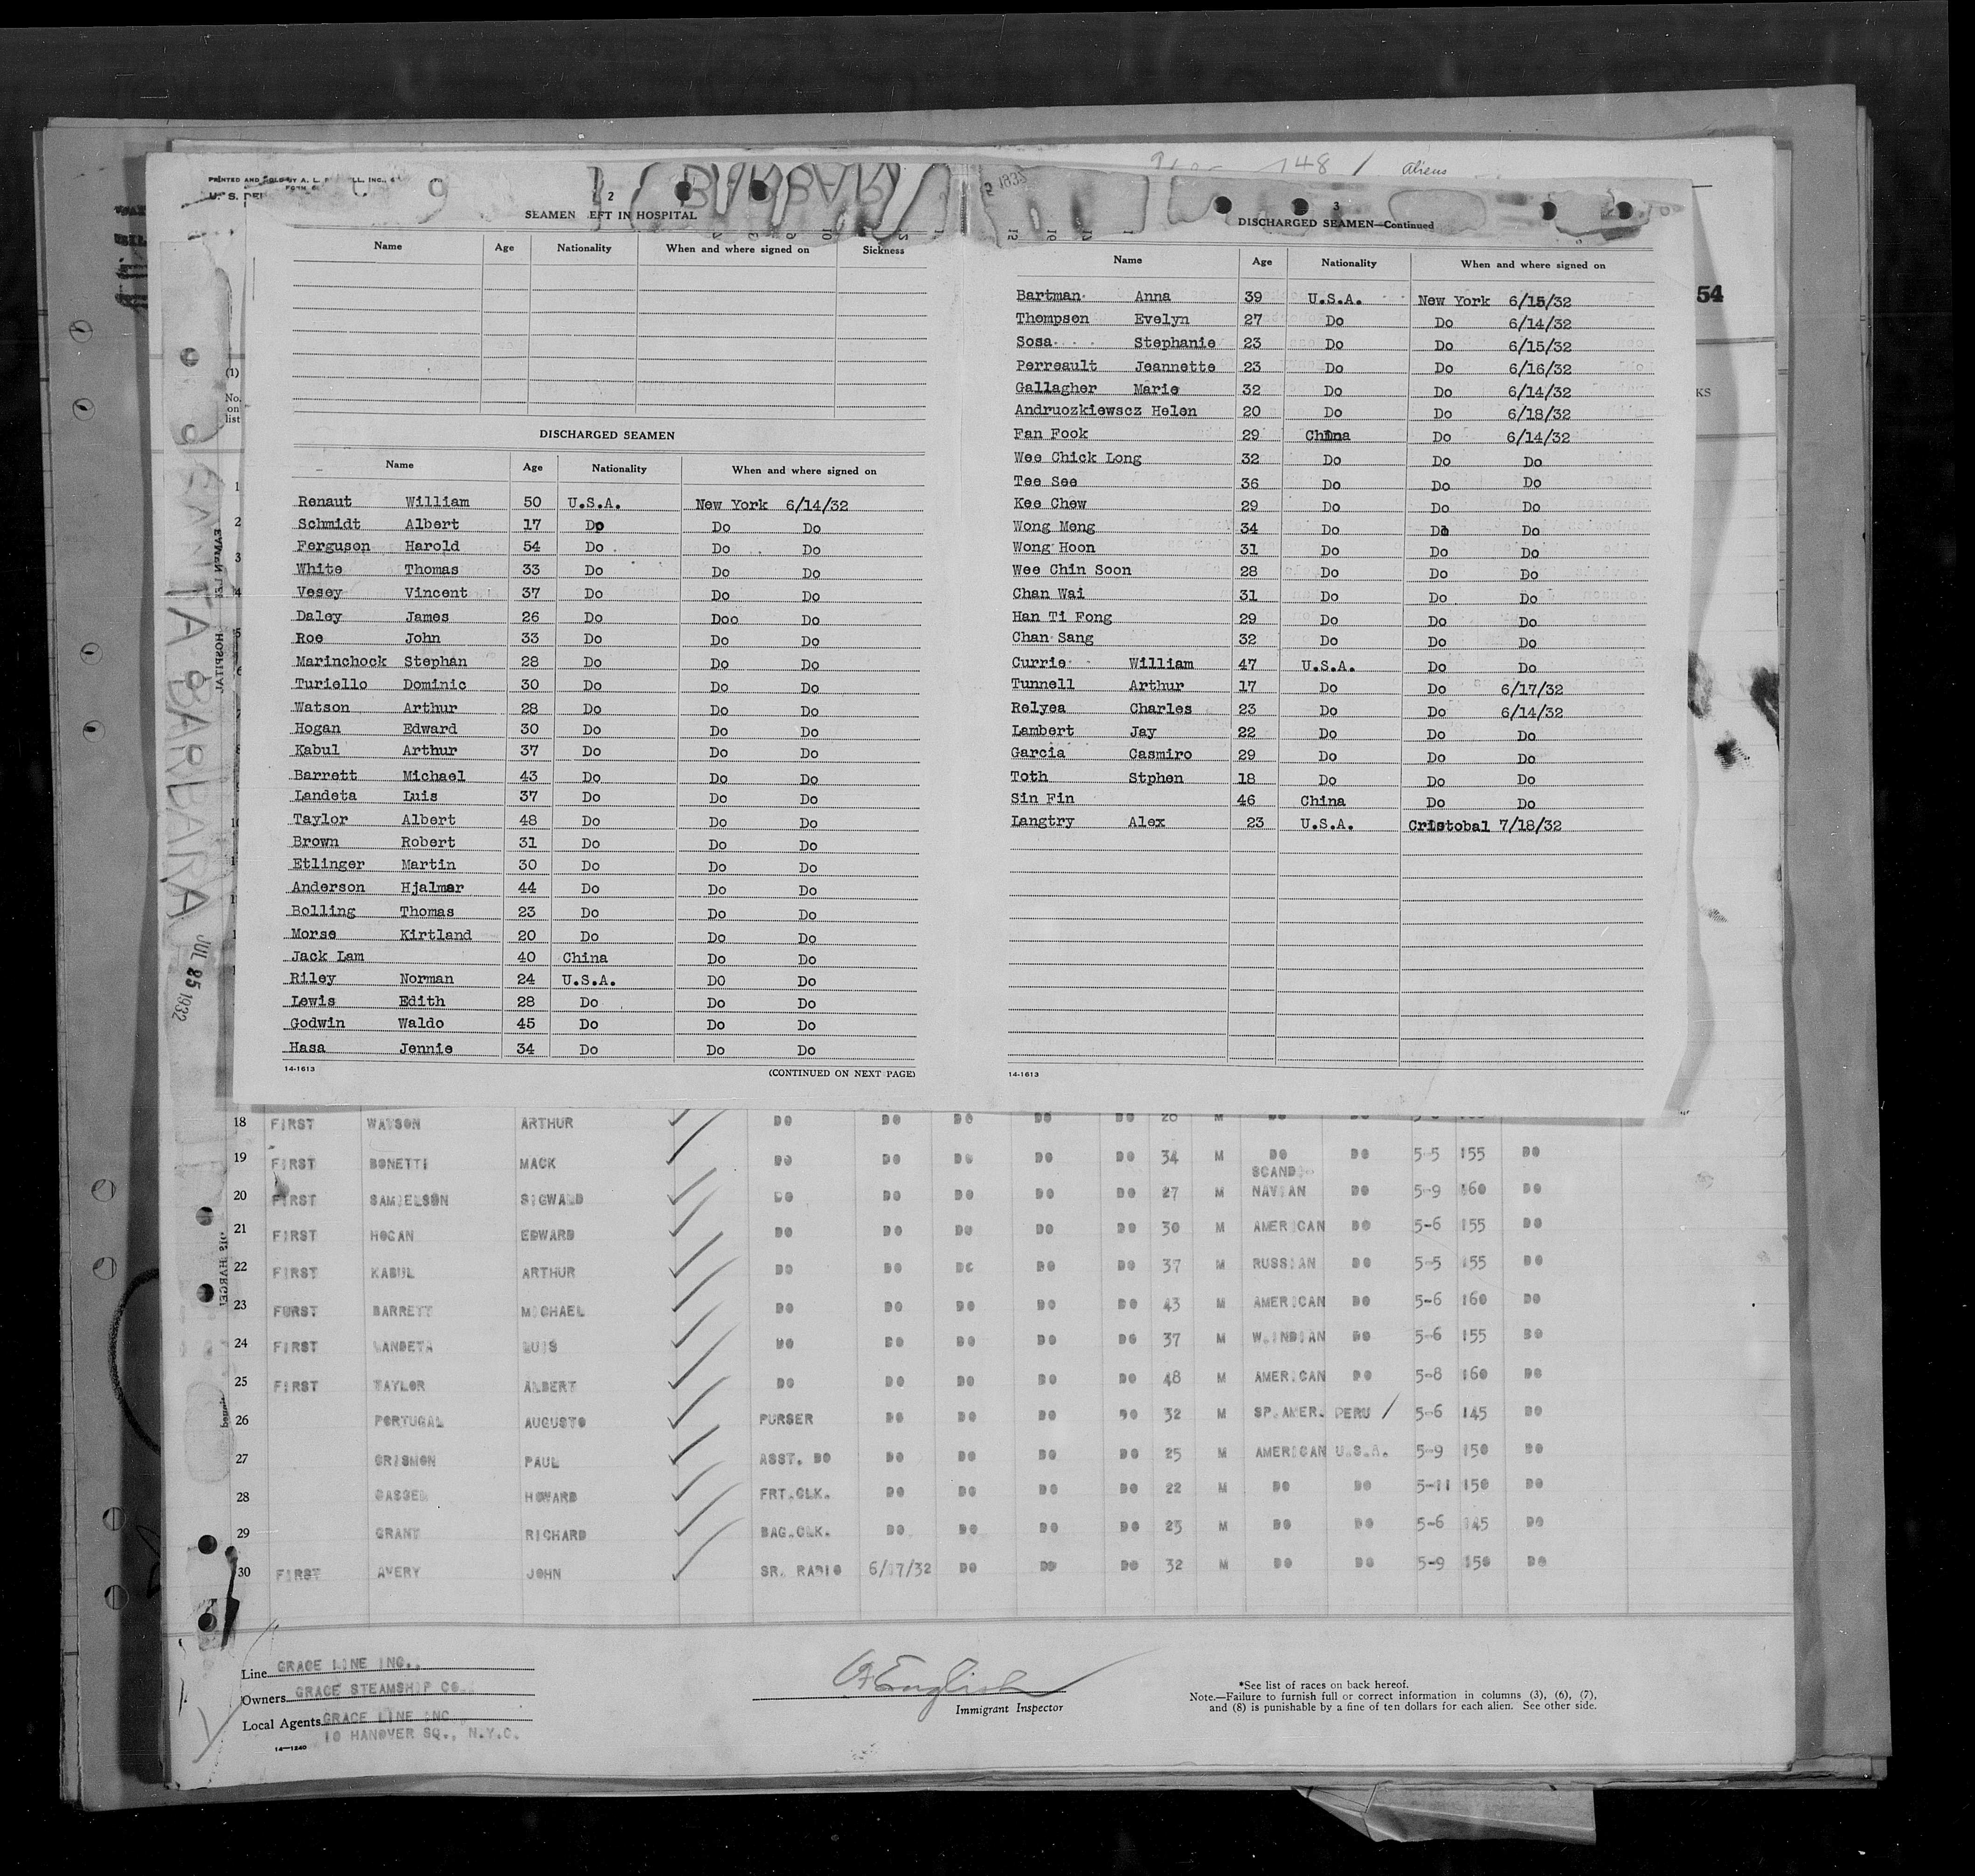 PRINTED AND SOLD BY A. L.
U. S. DE
BARBAR
148 / Aliens
2
SEAMEN LEFT IN HOSPITAL
Name Age Nationality When and where signed on Sickness
DISCHARGED SEAMEN
Name Age Nationality When and where signed on
Renaut William 50 U.S.A. New York 6/14/32
Schmidt Albert 17 Do Do Do
Ferguson Harold 54 Do Do Do
White Thomas 33 Do Do Do
Vesey Vincent 37 Do Do Do
Daley James 26 Do Doo Do
Roe John 33 Do Do Do
Marinchock Stephan 28 Do Do Do
Turiello Dominic 30 Do Do Do
Watson Arthur 28 Do Do Do
Hogan Edward 30 Do Do Do
Kabul Arthur 37 Do Do Do
Barrett Michael 43 Do Do Do
Landeta Luis 37 Do Do Do
Taylor Albert 48 Do Do Do
Brown Robert 31 Do Do Do
Etlinger Martin 30 Do Do Do
Anderson Hjalmar 44 Do Do Do
Bolling Thomas 23 Do Do Do
Morse Kirtland 20 Do Do Do
Jack Lam 40 China Do Do
Riley Norman 24 U.S.A. DO Do
Lewis Edith 28 Do Do Do
Godwin Waldo 45 Do Do Do
Hasa Jennie 34 Do Do Do
14-1613 (CONTINUED ON NEXT PAGE)
3
DISCHARGED SEAMEN—Continued
Name Age Nationality When and where signed on
Bartman Anna 39 U.S.A. New York 6/15/32
Thompson Evelyn 27 Do Do 6/14/32
Sosa Stephanie 23 Do Do 6/15/32
Perreault Jeannette 23 Do Do 6/16/32
Gallagher Marie 32 Do Do 6/14/32
Andruozkiewscz Helen 20 Do Do 6/18/32
Fan Fook 29 China Do 6/14/32
Wee Chick Long 32 Do Do Do
Tee See 36 Do Do Do
Kee Chew 29 Do Do Do
Wong Meng 34 Do Do Do
Wong Hoon 31 Do Do Do
Wee Chin Soon 28 Do Do Do
Chan Wai 31 Do Do Do
Han Ti Fong 29 Do Do Do
Chan Sang 32 Do Do Do
Currie William 47 U.S.A. Do Do
Tunnell Arthur 17 Do Do 6/17/32
Relyea Charles 23 Do Do 6/14/32
Lambert Jay 22 Do Do Do
Garcia Casmiro 29 Do Do Do
Toth Stphen 18 Do Do Do
Sin Fin 46 China Do Do
Langtry Alex 23 U.S.A. Cristobal 7/18/32
14-1613
54
KS
(1)
No. on list
SANTA BARBARA
JUL 25 1932
18 FIRST WATSON ARTHUR DO DO DO DO DO 28 M DO DO
19 FIRST BONETTI MACK DO DO DO DO DO 34 M DO DO 5-5 155 DO
20 FIRST SAMIELSON SIGWALD DO DO DO DO DO 27 M SCANDINAVIAN DO 5-9 160 DO
21 FIRST HOGAN EDWARD DO DO DO DO DO 30 M AMERICAN DO 5-6 155 DO
22 FIRST KABUL ARTHUR DO DO DO DO DO 37 M RUSSIAN DO 5-5 155 DO
23 FURST BARRETT MICHAEL DO DO DO DO DO 43 M AMERICAN DO 5-6 160 DO
24 FIRST LANDETA LUIS DO DO DO DO DO 37 M W.INDIAN DO 5-6 155 DO
25 FIRST TAYLOR ALBERT DO DO DO DO DO 48 M AMERICAN DO 5-8 160 DO
26 PORTUGAL AUGUSTO PURSER DO DO DO DO 32 M SP.AMER. PERU / 5-6 145 DO
27 GRISMON PAUL ASST. DO DO DO DO DO 25 M AMERICAN U.S.A. 5-9 150 DO
28 GASSER HOWARD FRT.CLK. DO DO DO DO 22 M DO DO 5-11 150 DO
29 GRANT RICHARD BAG.CLK. DO DO DO DO 23 M DO DO 5-6 145 DO
30 FIRST AVERY JOHN SR. RADIO 6/17/32 DO DO DO 32 M DO DO 5-9 150 DO
Line GRACE LINE INC.
Owners GRACE STEAMSHIP CO.
Local Agents GRACE LINE INC
10 HANOVER SQ., N.Y.C.
14—1240
English
Immigrant Inspector
*See list of races on back hereof.
Note.—Failure to furnish full or correct information in columns (3), (6), (7),
and (8) is punishable by a fine of ten dollars for each alien. See other side.